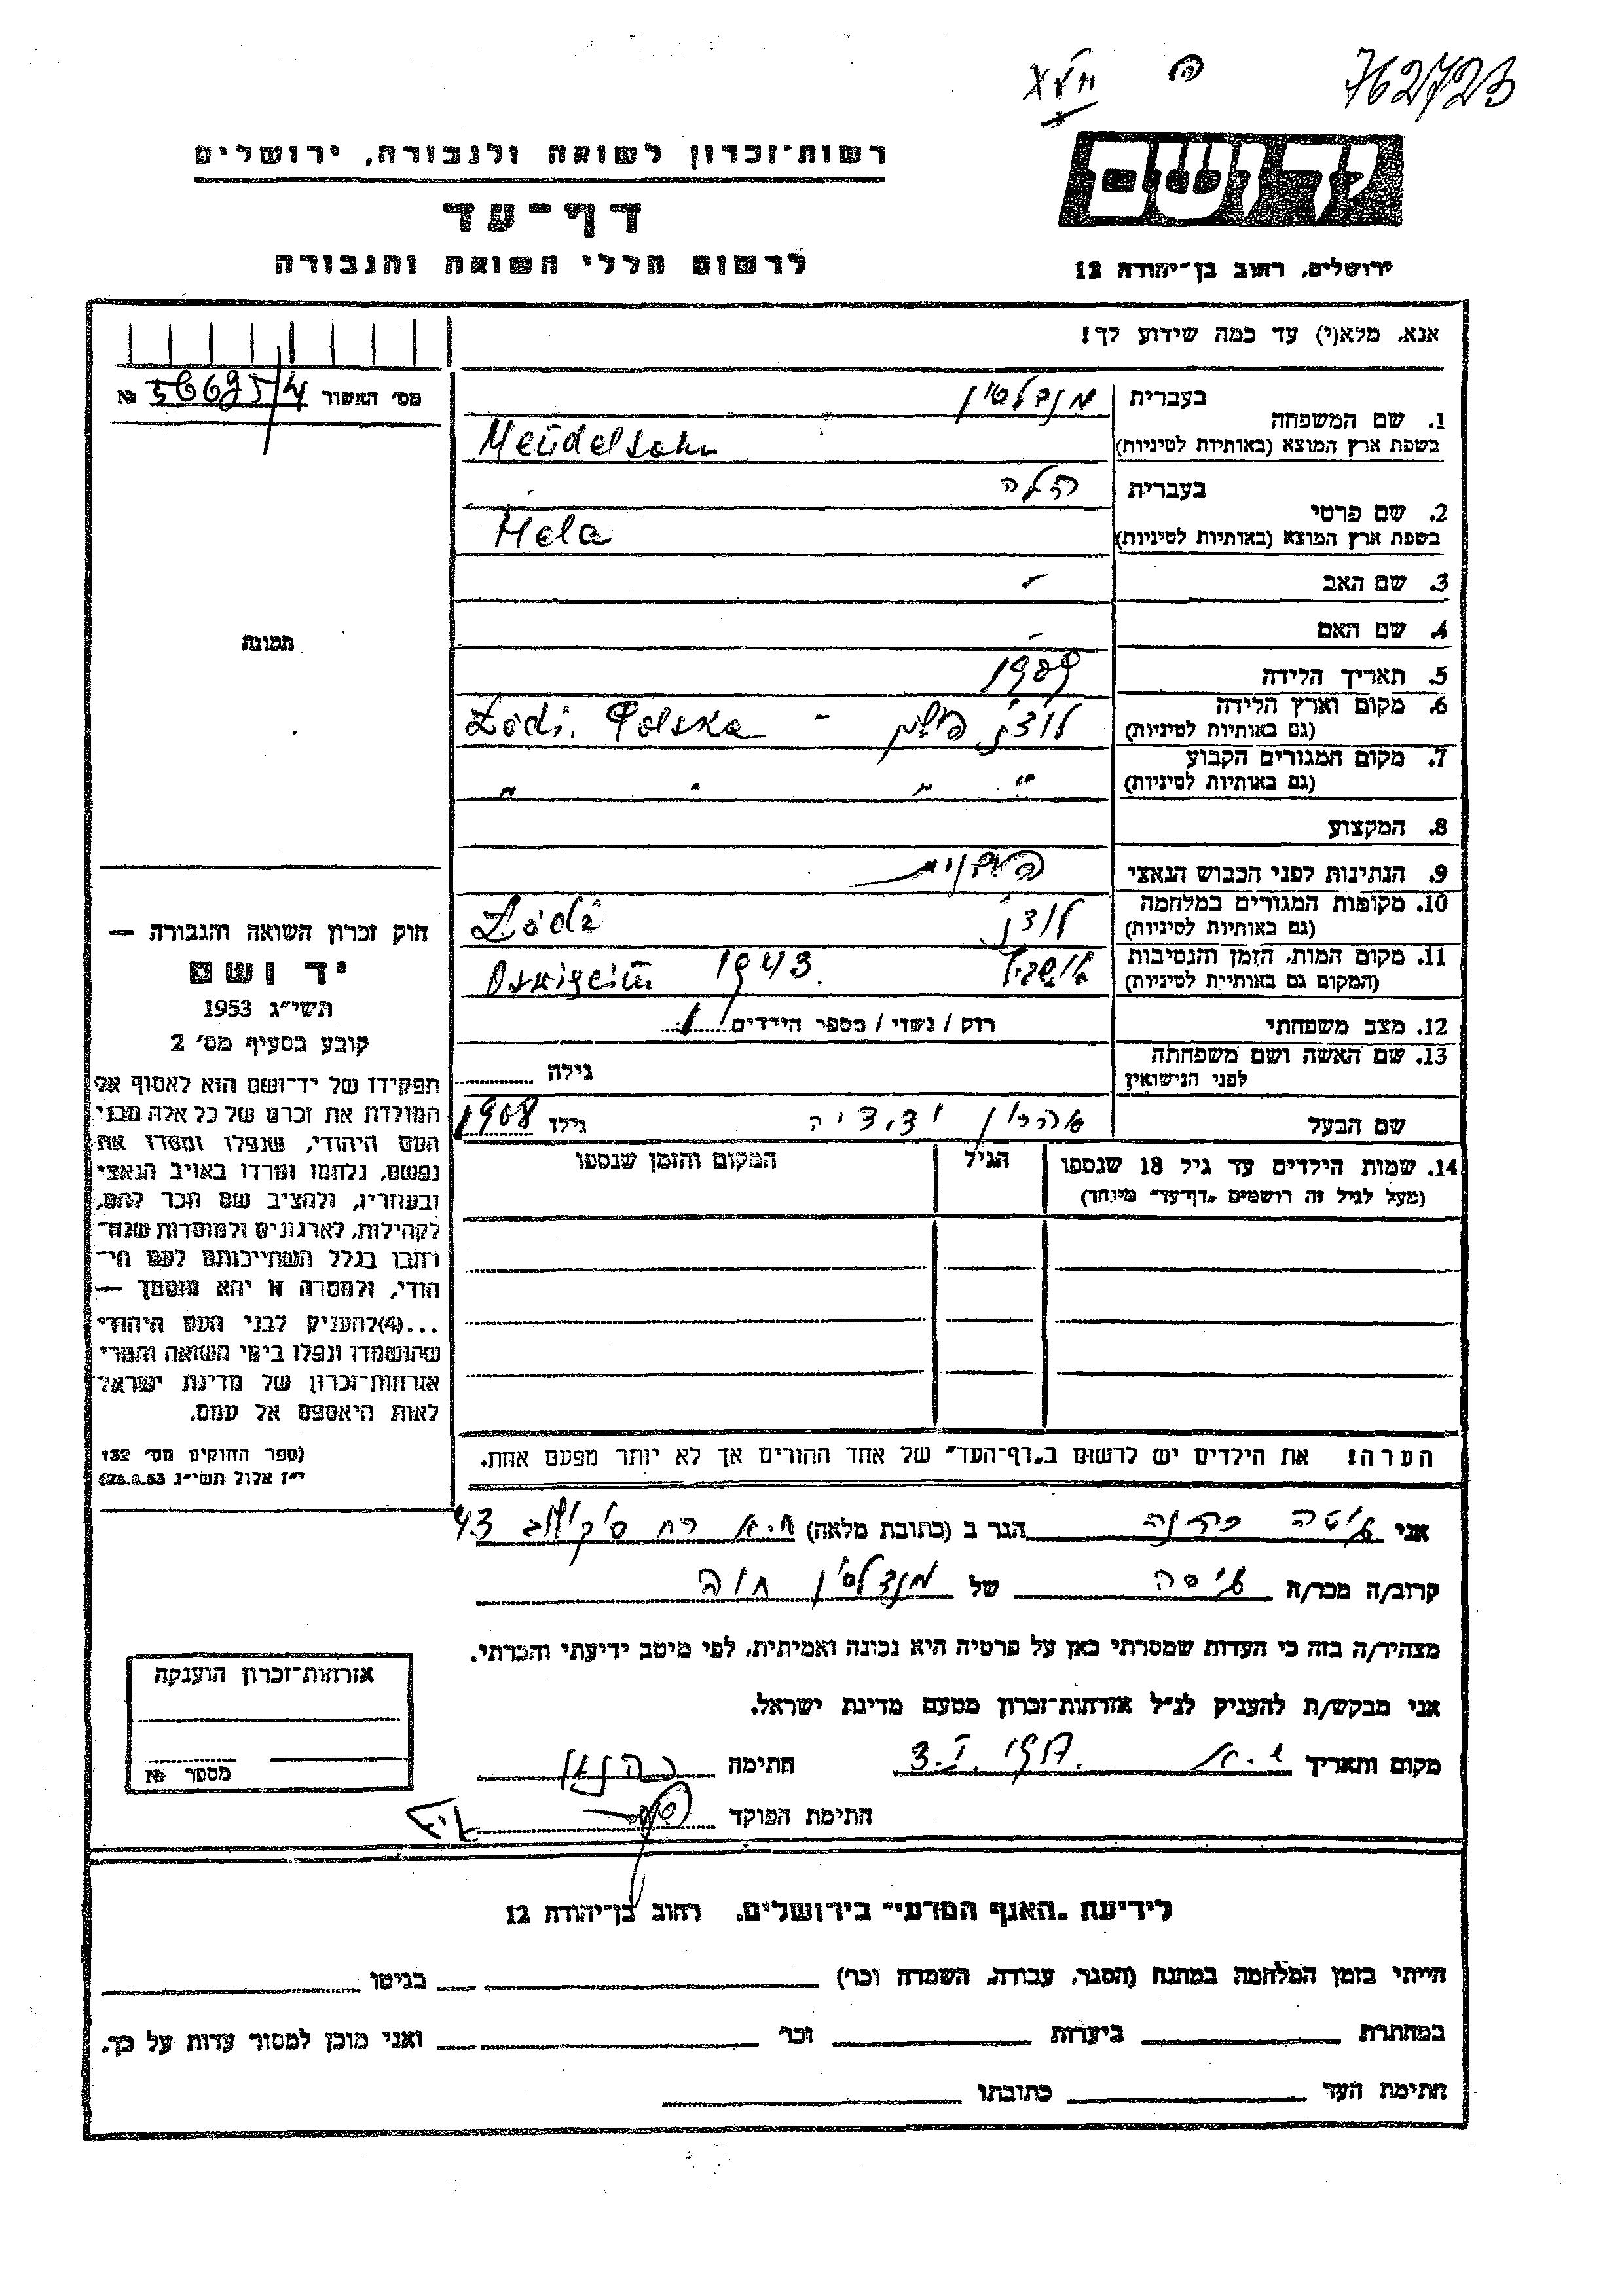 762723
רשות־זכרון לשואה ולגבורה, ירושלים
דף־עד
לרשום חללי השואה והגבורה
יד ושם
ירושלים, רחוב בן־יהודה 12
אנא, מלא(י) עד כמה שידוע לך!
מס' האשור № 566954
1. שם המשפחה
בעברית מנדלסון
בשפת ארץ המוצא (באותיות לטיניות) Mendelsohn
2. שם פרטי
בעברית הלה
בשפת ארץ המוצא (באותיות לטיניות) Hela
3. שם האב -
4. שם האם -
5. תאריך הלידה 1909
6. מקום וארץ הלידה לודז' פולין - Łódź. Polska
(גם באותיות לטיניות)
7. מקום המגורים הקבוע " " " "
(גם באותיות לטיניות)
8. המקצוע
9. הנתינות לפני הכבוש הנאצי פולנית
10. מקומות המגורים במלחמה לודז' Łódź
(גם באותיות לטיניות)
11. מקום המות, הזמן והנסיבות 1943.
(המקום גם באותיות לטיניות)
12. מצב משפחתי רוק / נשוי / מספר הילדים 1
13. שם האשה ושם משפחתה
לפני הנישואין
גילה
שם הבעל אהרון ידידיה גילו 1908
14. שמות הילדים עד גיל 18 שנספו הגיל המקום והזמן שנספו
(מעל לגיל זה רושמים "דף־עד" מיוחד)
הערה! את הילדים יש לרשום ב"דף־העד" של אחד ההורים אך לא יותר מפעם אחת.
תמונה
חוק זכרון השואה והגבורה —
יד ושם
תשי"ג 1953
קובע בסעיף מס' 2
תפקידו של יד־ושם הוא לאסוף אל
המולדת את זכרם של כל אלה מבני
העם היהודי, שנפלו ומסרו את
נפשם, נלחמו ומרדו באויב הנאצי
ובעוזריו, ולהציב שם וזכר להם,
לקהילות, לארגונים ולמוסדות שנח־
רבו בגלל השתייכותם לעם הי־
הודי, ולמטרה זו יהא מוסמך —
...(4)להעניק לבני העם היהודי
שהושמדו ונפלו בימי השואה והמרי
אזרחות־זכרון של מדינת ישראל
לאות היאספם אל עמם.
(ספר החוקים מס' 132
י"ז אלול תשי"ג 28.8.53)
אני הגר ב (כתובת מלאה) ת.א רח סוקולוב 43
קרוב/ה מכר/ה גיסה של מנדלסון חוה
מצהיר/ה בזה כי העדות שמסרתי כאן על פרטיה היא נכונה ואמיתית, לפי מיטב ידיעתי והכרתי.
אני מבקש/ת להעניק לנ"ל אזרחות־זכרון מטעם מדינת ישראל.
מקום ותאריך ת.א חתימה
חתימת הפוקד
אזרחות־זכרון הוענקה
מספר №
לידיעת "האגף המדעי" בירושלים, רחוב בן־יהודה 12
הייתי בזמן המלחמה במחנה (הסגר, עבודה, השמדה וכו') בגיטו
במחתרת ביערות וכו' ואני מוכן למסור עדות על כך.
חתימת העד כתובתו